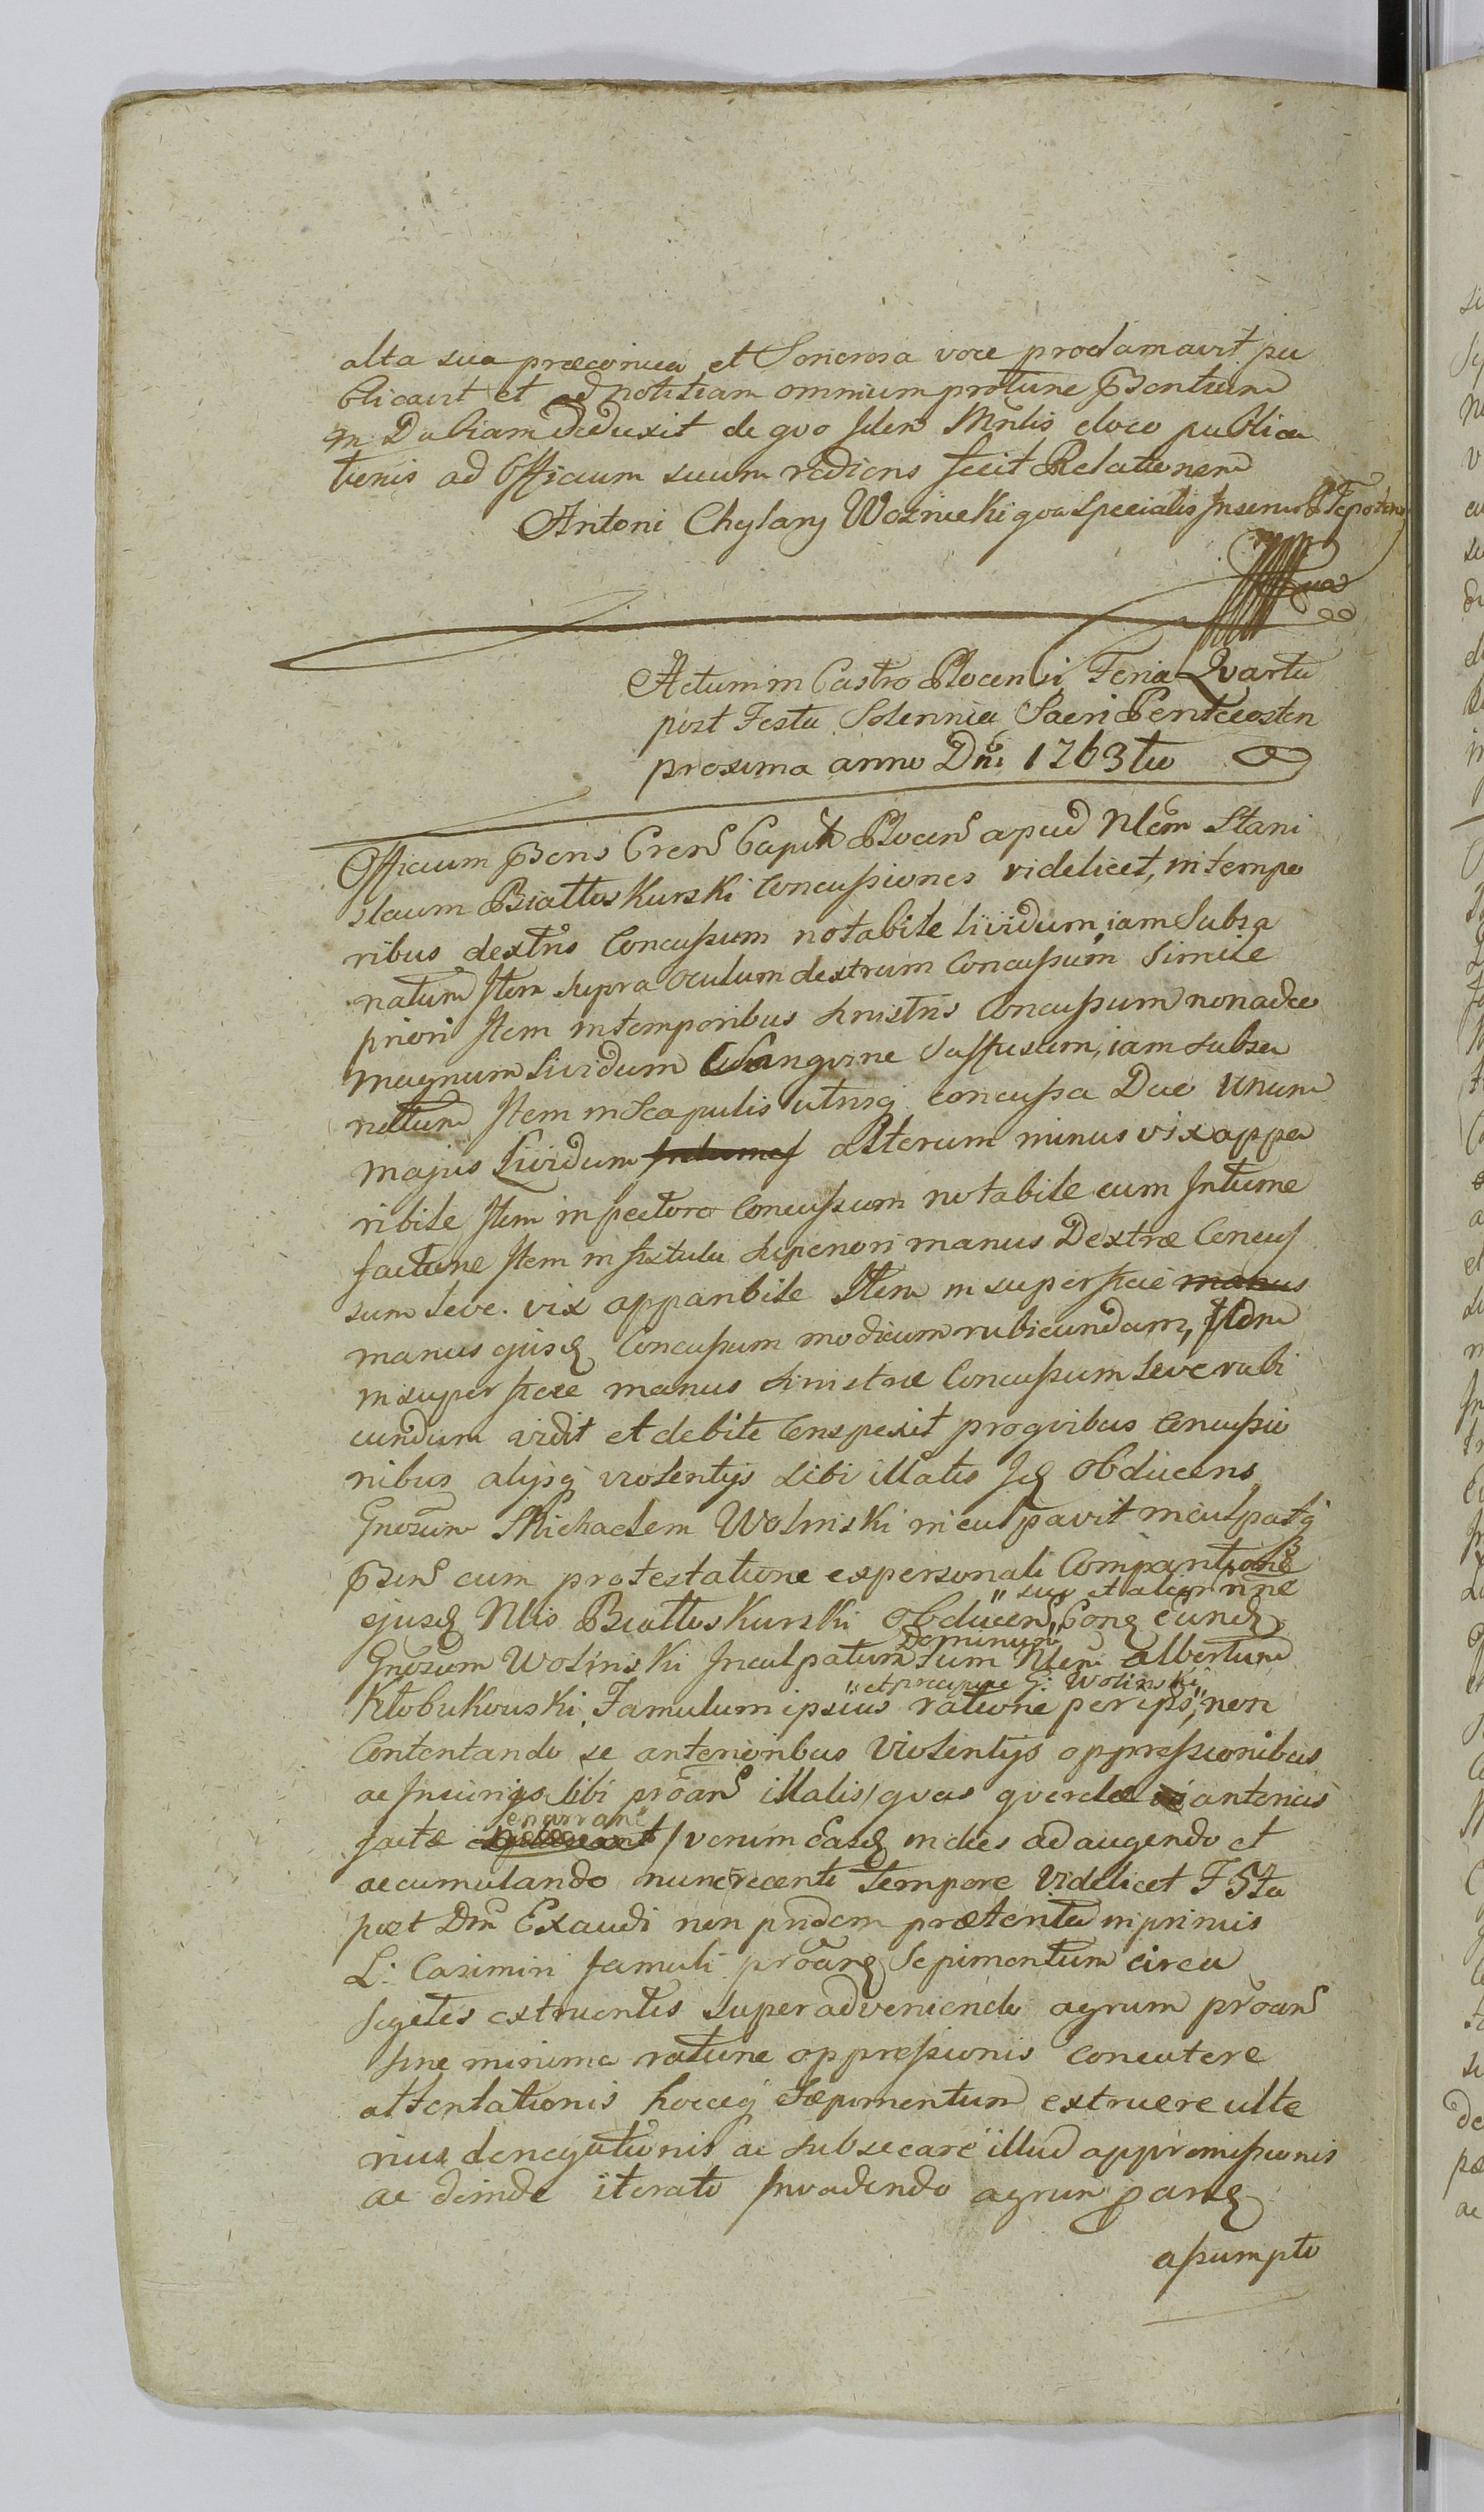 alta sua præconica et Sonorosa voce proclamavit pu
blicavit et ad notitiam omnium protunc Psentium
in Dubiam deduxit de quo Idem Mnlis eloco publica
tionis ad Officium suum rediens fecit Relationem
Antoni Chylary Woznicki qua specialis
Actum in Castro Plocensi Feria Qvarta
post Festa Solennia Sacri Pentecosten
proxima anno Dni 1763tio
Officium Psens Cren Capit Plocen apud Nlem Stani
slaum Białłoskurski Concussiones videlicet, in tempo
ribus dextris Concussum notabile lividum, iam Subsa
natum Item supra oculum dextrum Concussum Simile
priori Item in temporibus sinistris Concussum non adeo
magnum lividum Sangvine Suffusum, iam subsa
natum Item in Scapulis utrisq concussa Duo unum
majus lividum alterum minus vix appa
ribile Item in pectore Concussum notabile cum Intume
factione Item in fistula superiori manus Dextræ Concus
sum leve. vix apparibile Item in superficie manus
manus ejusd Concussum modicum rubicundum, Item
in superficie manus sinistræ Concussum leve rubi
cundum vidit et debite Conspexit proqvibus Concussio
nibus alijsq violentijs sibi illatis Id Obducens
Gnosum Michaelem Wolinski inculpavit inculpatq
Psens cum protestatione expersonali Comparitione
ejusd Nlis Białłoskurski Obducen, " suo et alior nne Conq eund
Gnosum Wolinski Inculpatum Dominum tum Nlem Albertum
Kłobukowski Famulum ipsius " et præcipue G: Wolinski ratione per ipsos, non
Contentando se anterioribus Violentijs oppressionibus
ac Iniurijs sibi proan illatis / qvas qverelæ anterius
factæ enarrant / verum Easd in dies ad augendo et
accumulando nunc recenti tempore Videlicet F 5ta
post Dnc Exaudi non pridem præterita inprimis
L: Casimiri famuli proanq Sepimentum circa
segetes extruentis superadveniendo agrum proan
sine minima ratione oppressionis concutere
attentationis hoccq sæpimentum extruere ulte
rius denegationis ac subsecare illud appromissionis
ac deinde iterato Invadendo agrum
assumpto